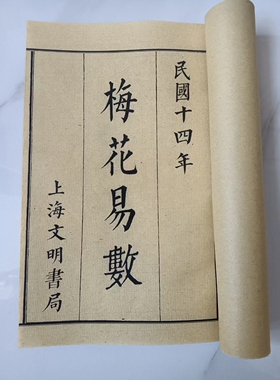 民國十四年
梅花易數
上海文明書局